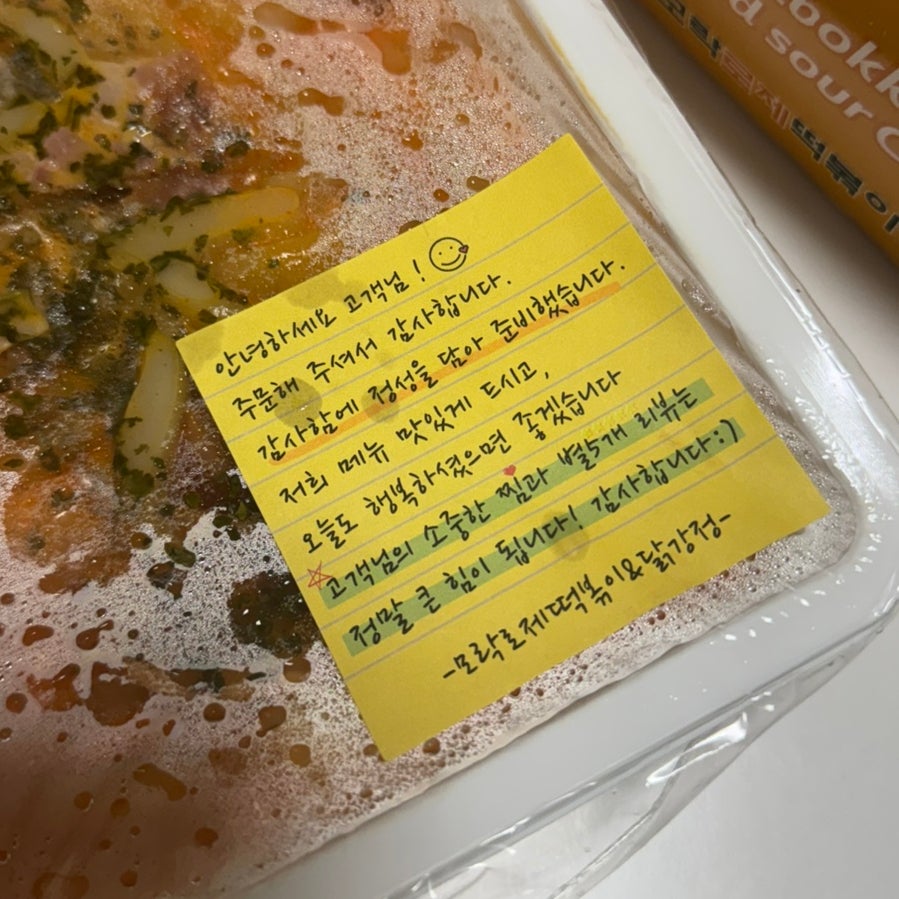 안녕하세요 고객님!
주문해 주셔서 감사합니다.
감사함에 정성을 담아 준비했습니다.
저희 메뉴 맛있게 드시고,
오늘도 행복하셨으면 좋겠습니다
☆고객님의 소중한 찜과 별5개 리뷰는
정말 큰 힘이 됩니다! 감사합니다:)
-모락로제떡볶이&닭강정-
ookk
d sour c
모락로제떡볶이